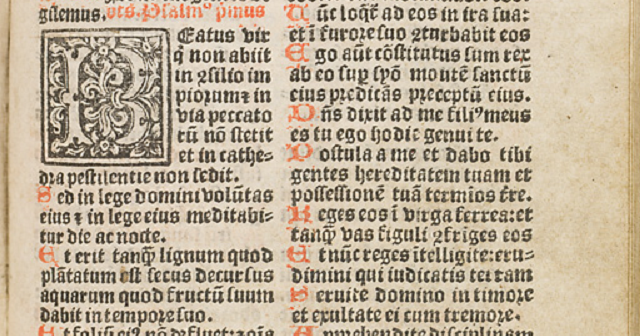 gilemus. Ors. Psalm⁹ pimus
BEatus vir
q̃ non abiit
in ꝯsilio im
piorumꝛ in
via peccato
rũ nõ stetit
et in cathe-
dra pestilentie non sedit.
Sed in lege domini volũtas
eius ꝛ in lege eius meditabi-
tur die ac nocte.
Et erit tanq̃ lignum quod
plãtatum est secus decursus
aquarum quod fructũ suum
dabit in tempore suo.
Et foliũ ei⁹ nõ
Tũc loqet̃ ad eos in ira sua:
et ĩ furore suo ꝯturbabit eos
Ego aũt cõstitutus sum rex
ab eo sup syõ montẽ sanctũ
eius predicãs preceptũ eius.
Dñs dixit ad me fili⁹ meus
es tu ego hodie genui te.
Postula a me et dabo tibi
gentes hereditatem tuam et
possessionẽ tuã termĩos tre.
Reges eos ĩ virga ferrea: et
tanq̃ vas figuli ꝯfriges eos
Et nũc reges ĩtelligite: eru-
dimini qui iudicatis terram
Seruite domino in timore
et exultate ei cum tremore.
Apprehendite disciplinam